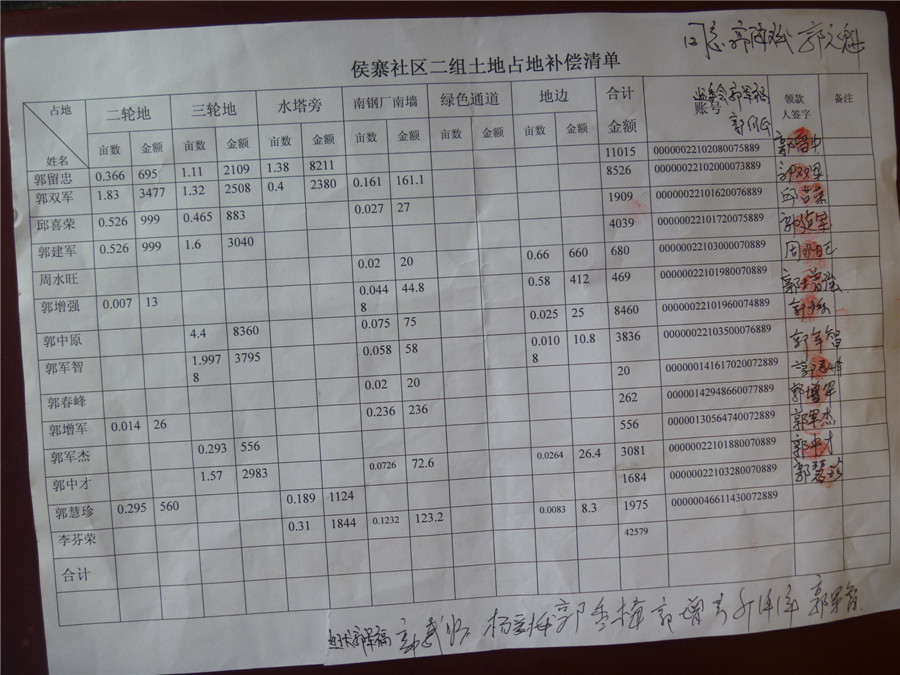 侯寨社区二组土地占地补偿清单
占地 二轮地 三轮地 水塔旁 南钢厂南墙 绿色通道 地边 合计 账号 领款 备注
姓名 亩数 金额 亩数 金额 亩数 金额 亩数 金额 亩数 金额 亩数 金额 金额 人签字
郭留忠 0.366 695 1.11 2109 1.38 8211 11015 00000022102080075889 郭留中
郭双军 1.83 3477 1.32 2508 0.4 2380 0.161 161.1 8526 00000022102000073889 郭双军
邱喜荣 0.526 999 0.465 883 0.027 27 1909 00000022101620076889 邱喜荣
郭建军 0.526 999 1.6 3040 4039 00000022101720075889 郭建军
周水旺 0.02 20 0.66 660 680 00000022103000070889 周水旺
郭增强 0.007 13 0.0448 44.8 0.58 412 469 00000022101980070889 郭增强
郭中原 4.4 8360 0.075 75 0.025 25 8460 00000022101960074889
郭军智 1.9978 3795 0.058 58 0.0108 10.8 3836 00000022103500076889 郭军智
郭春峰 0.02 20 20 00000141617020072889 郭春峰
郭增军 0.014 26 0.236 236 262 00000142948660077889 郭增军
郭军杰 0.293 556 556 00000130564740072889 郭军杰
郭中才 1.57 2983 0.0726 72.6 0.0264 26.4 3081 00000022101880070889 郭中才
郭慧珍 0.295 560 0.189 1124 1684 00000022103280070889 郭慧珍
李芬荣 0.31 1844 0.1232 123.2 0.0083 8.3 1975 00000046611430072889
合计 42579